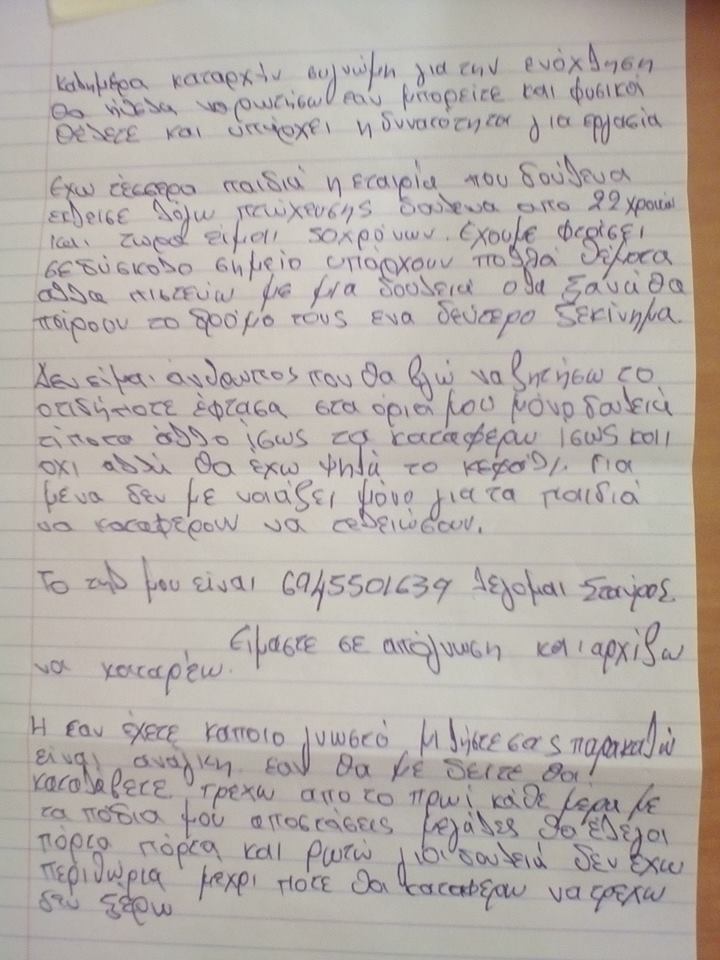 καλημέρα καταρχήν συγνώμη για την ενόχληση
θα ήθελα να ρωτήσω εαν μπορείτε και φυσικά
θέλετε και υπάρχει η δυνατότητα για εργασία
Εχω τέσσερα παιδιά η εταιρία που δούλευα
έκλεισε λόγω πτώχευσης δούλευα απο 22 χρονών
και τώρα είμαι 50χρόνων. Εχουμε φτάσει
σε δύσκολο σημείο υπάρχουν πολλά θέματα
αλλα πιστεύω με μια δουλεια ολα ξανά θα
πάρουν το δρόμο τους ενα δεύτερο ξεκίνημα.
Δεν είμαι άνθρωπος που θα βγώ να ζητήσω το
οτιδήποτε έφτασα στα όρια μου μόνο δουλειά
τίποτα άλλο ίσως τα καταφέρω ίσως και
οχι αλλά θα έχω ψηλά το κεφάλι. Για
μένα δεν με νοιάζει μόνο για τα παιδιά
να καταφέρουν να τελειώσουν.
Το τηλ μου είναι 6945501639 λέγομαι Σταύρος
Ειμαστε σε απόγνωση και αρχίζω
να καταρέω.
Η εαν έχετε κάποιο γνωστό μιλήστε σας παρακαλώ
είναι ανάγκη. εαν θα με δείτε θα
καταλάβετε τρέχω απο το πρωί κάθε μέρα με
τα πόδια μου αποστάσεις μεγάλες
πόρτα πόρτα και ρωτώ για δουλειά δεν έχω
περιθώρια μέχρι πότε θα καταφέρω να τρέχω
δεν ξέρω